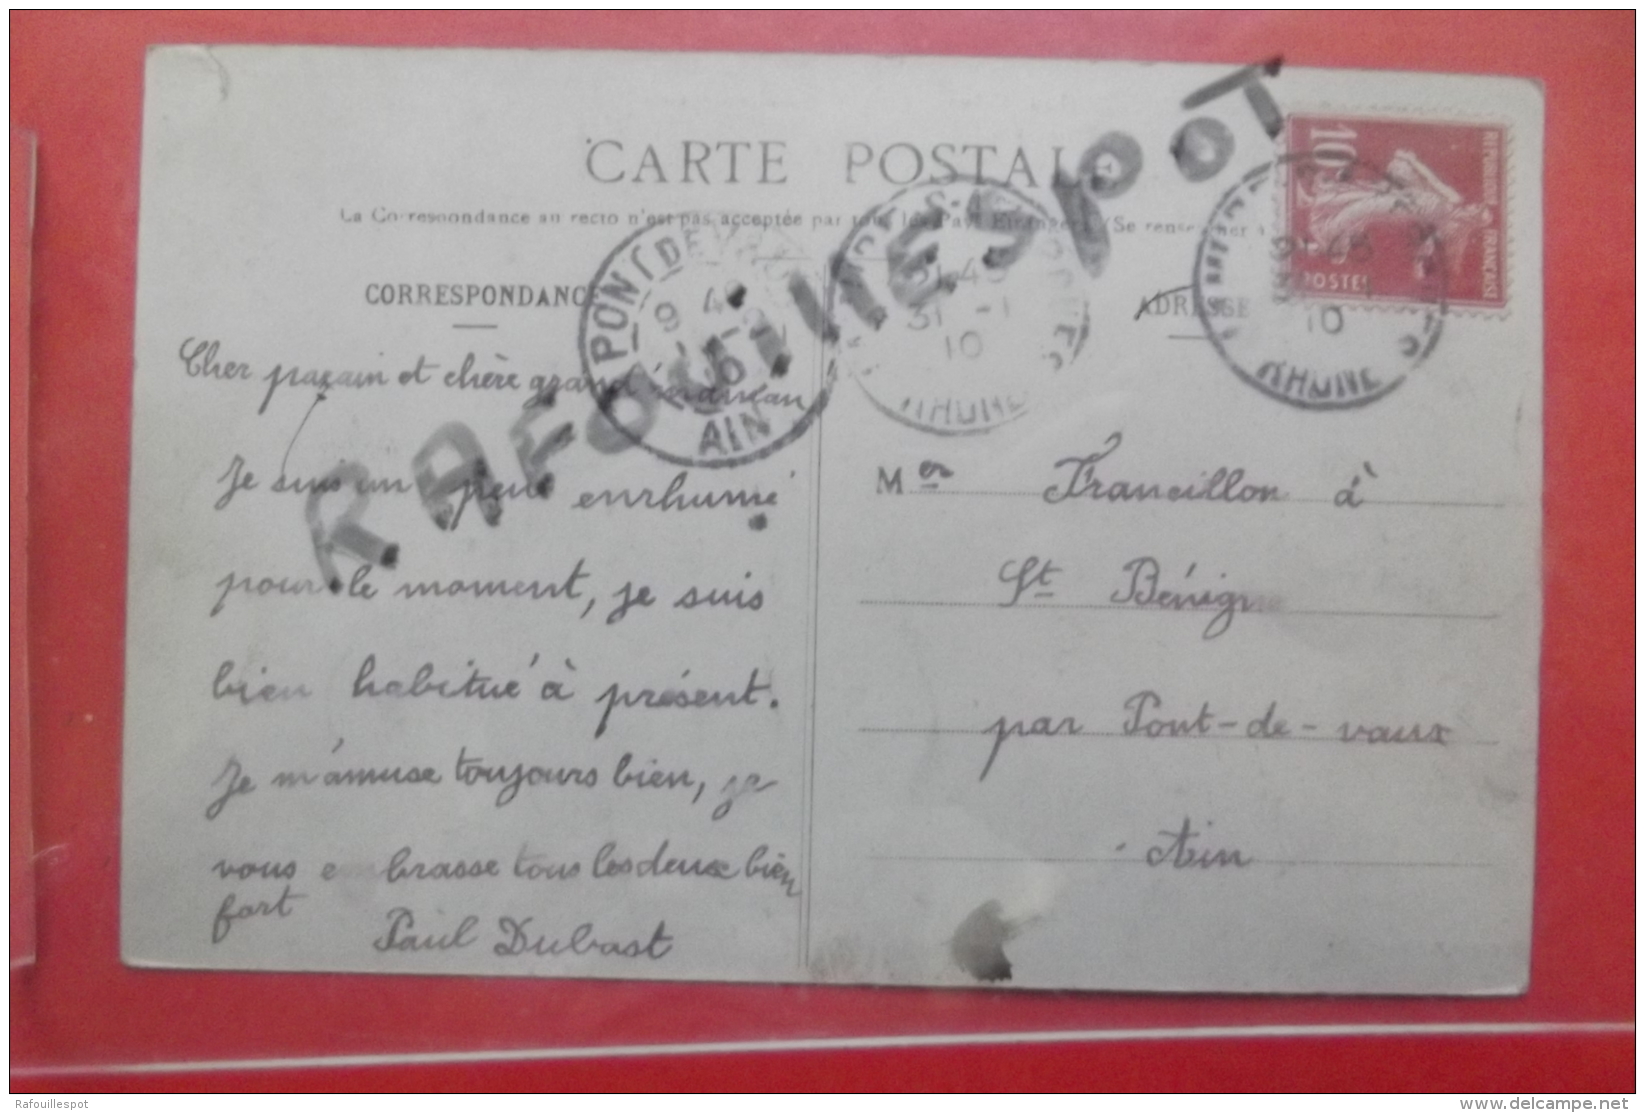 CARTE POSTALE
La Correspondance au recto n'est pas acceptée par tous les Pays Etrangers (Se renseigner à
CORRESPONDANCE
ADRESSE
RAFOUILLESPOT
10
REPUBLIQUE FRANÇAISE
POSTES
PONT DE
9 40
AIN
21 45
31 -1
10
RHONE
10
RHONE
Cher parain et chère grand maman
Je suis un peut enrhumé
pour le moment, je suis
bien habitué à présent.
Je m'amuse toujours bien, je
vous embrasse tous les deux bien
fort
Paul Dubast
Mer Francillon à
St Bénigne
par Pont-de-vaux
Ain
Rafouillespot
www.delcampe.net